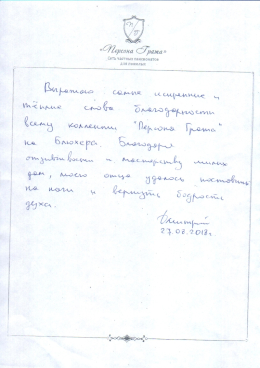 «Персона Грата»
Сеть частных пансионатов
для пожилых
Выражаю самые искренние и
тёплые слова благодарности
всему коллективу "Персона Грата"
на Блюхера. Благодаря
отзывчивости и мастерству милых
дам, моего отца удалось поставить
на ноги и вернуть бодрость
духа.
Дмитрий
27.08.2018г.